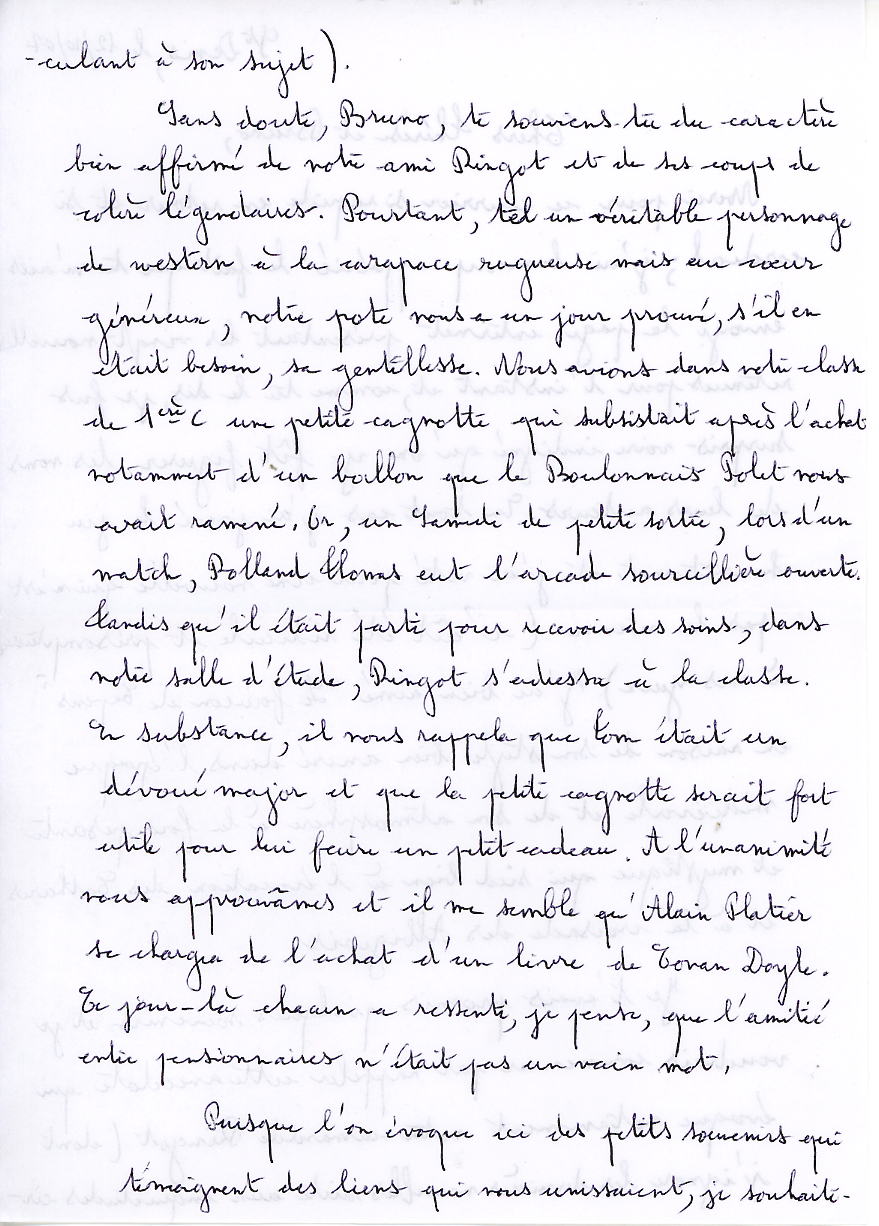 -culant à son sujet).
Sans doute, Bruno, te souviens-tu du caractère
bien affirmé de notre ami Ringot et de ses coups de
colère légendaires. Pourtant, tel un véritable personnage
de western à la carapace rugueuse mais au cœur
généreux, notre pote nous a un jour prouvé, s'il en
était besoin, sa gentillesse. Nous avions dans notre classe
de 1ère C une petite cagnotte qui subsistait après l'achat
notamment d'un ballon que le Boulonnais Polet nous
avait ramené. Or, un Samedi de petite sortie, lors d'un
match, Rolland Thomas eut l'arcade sourcillière ouverte.
Tandis qu'il était parti pour recevoir des soins, dans
notre salle d'étude, Ringot s'adressa à la classe.
En substance, il nous rappela que Tom était un
dévoué major et que la petite cagnotte serait fort
utile pour lui faire un petit cadeau. A l'unanimité
nous approuvâmes et il me semble qu'Alain Platier
se chargea de l'achat d'un livre de Conan Doyle.
Ce jour-là chacun a ressenti, je pense, que l'amitié
entre pensionnaires n'était pas un vain mot.
Puisque l'on évoque ici des petits souvenirs qui
témoignent des liens qui nous unissaient, je souhaite-